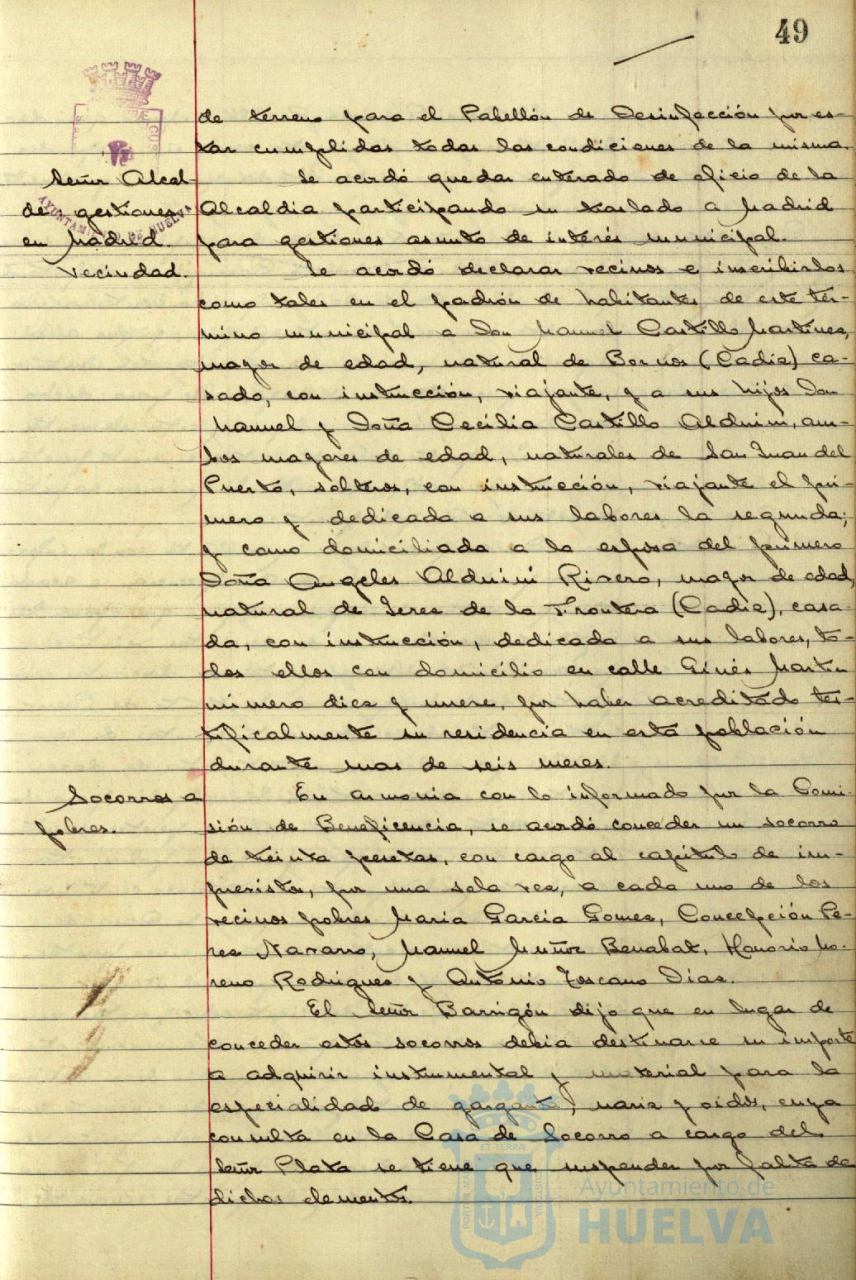 49
de terreno para el Pabellón de Desinfección por es-
tar cumplidas todas las condiciones de la misma.
Señor Alcal-
de gestiones
en Madrid.
Se acordó quedar enterado de oficio de la
Alcaldia participando su traslado a Madrid
para gestiones asunto de interés municipal.
Vecindad.
Se acordó declarar vecinos e inscribirlos
como tales en el padrón de habitantes de este tér-
mino municipal a Don Manuel Castillo Martines,
mayor de edad, natural de Bornos (Cadiz) ca-
sado, con instrucción, viajante, y a sus hijos Don
Manuel y Doña Cecilia Castillo Alduini, am-
bos mayores de edad, naturales de San Juan del
Puerto, solteros, con instrucción, viajante el pri-
mero y dedicada a sus labores la segunda;
y como domiciliada a la esposa del primero
Doña Angeles Alduini Rivero, mayor de edad,
natural de Jerez de la Frontera (Cadiz), casa-
da, con instrucción, dedicada a sus labores, to-
dos ellos con domicilio en calle Ginés Martin
número diez y nueve, por haber acreditado tes-
tificalmente su residencia en esta población
durante mas de seis meses.
Socorros a
pobres.
En armonia con lo informado por la Comi-
sión de Beneficencia, se acordó conceder un socorro
de treinta pesetas, con cargo al capítulo de im-
previstos, por una sola vez, a cada uno de los
vecinos pobres Maria Garcia Gomez, Concepción Pe-
rez Navarro, Manuel Muñoz Benabat, Honorio Mo-
reno Rodrigues y Antonio Toscano Dias.
El Señor Barrigón dijo que en lugar de
conceder estos socorros debia destinarse su importe
a adquirir instrumental y material para la
especialidad de garganta, nariz y oidos, cuya
consulta en la Casa de Socorro a cargo del
Señor Plata se tiene que suspender por falta de
dichos elementos.
AYUNTAMIENTO DE HUELVA
Ayuntamiento de
HUELVA